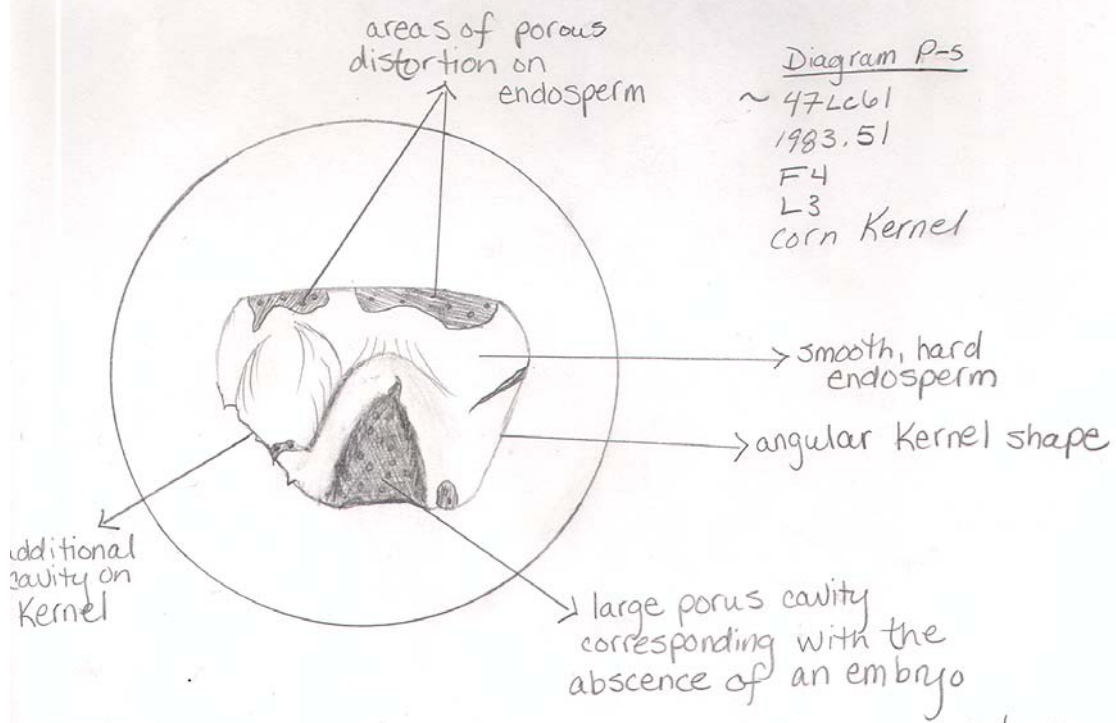 areas of porous
distortion on
endosperm
Diagram P-5
~ 47Lc61
1983.51
F4
L3
corn Kernel
smooth, hard
endosperm
angular Kernel shape
additional
cavity on
Kernel
large porus cavity
corresponding with the
abscence of an embryo